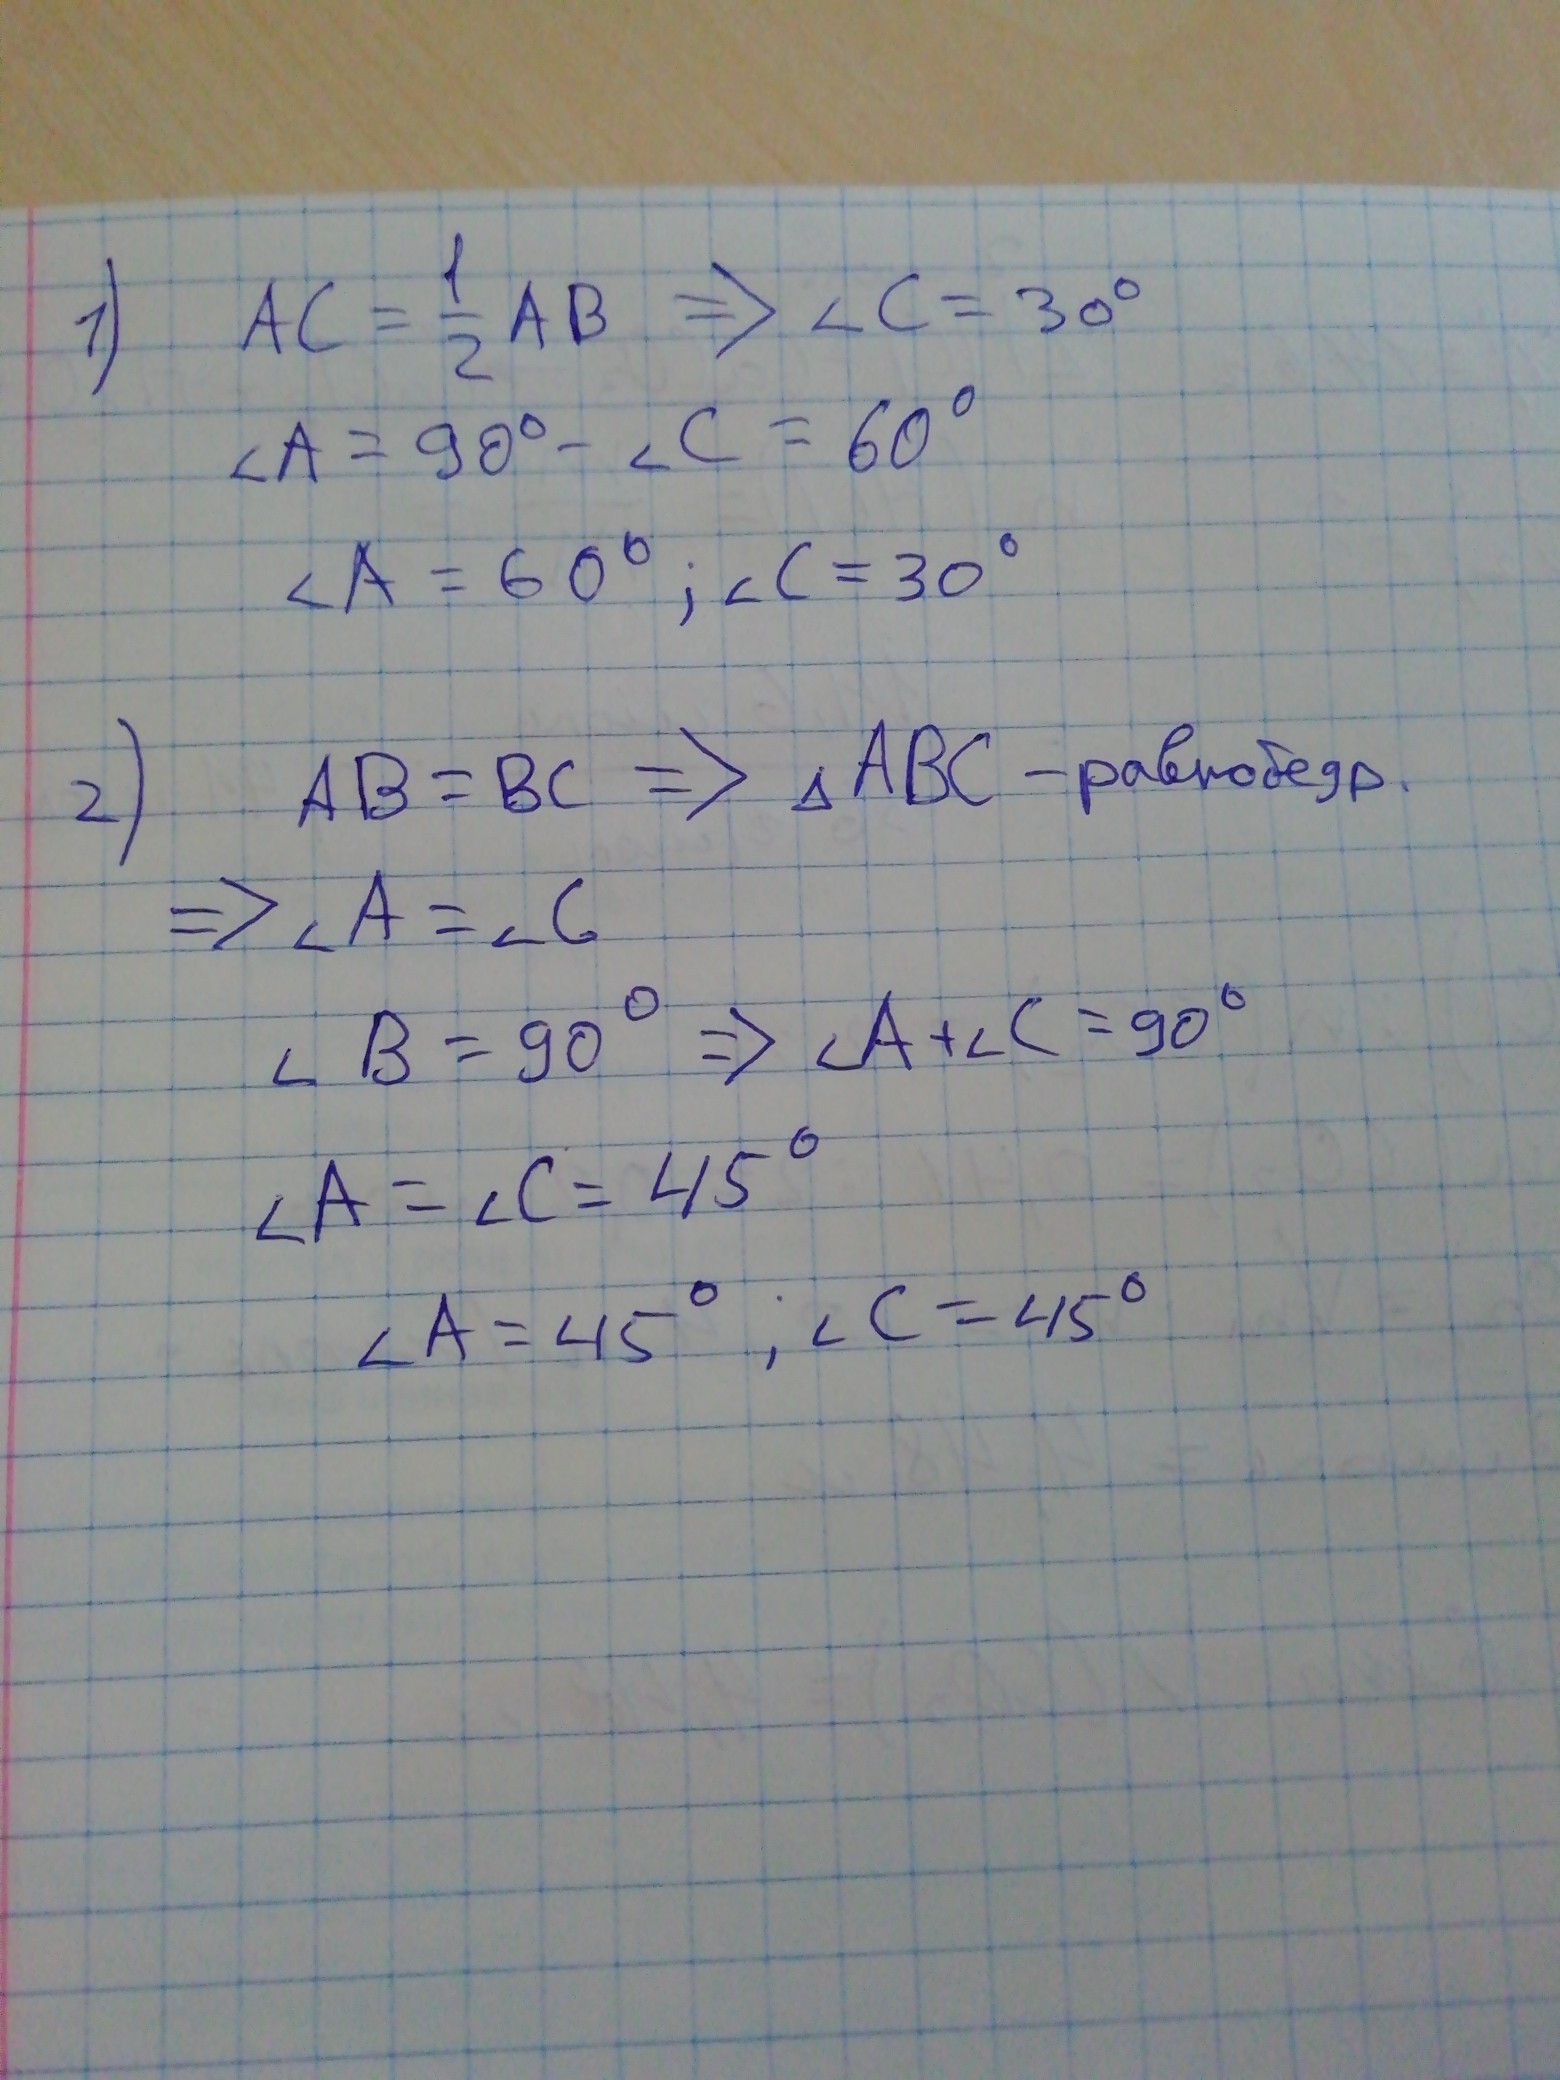 1) AC = 1/2 AB => ∠C = 30°
∠A = 90° - ∠C = 60°
∠A = 60° ; ∠C = 30°
2) AB = BC => △ABC - равнобедр.
=> ∠A = ∠C
∠B = 90° => ∠A + ∠C = 90°
∠A = ∠C = 45°
∠A = 45° ; ∠C = 45°